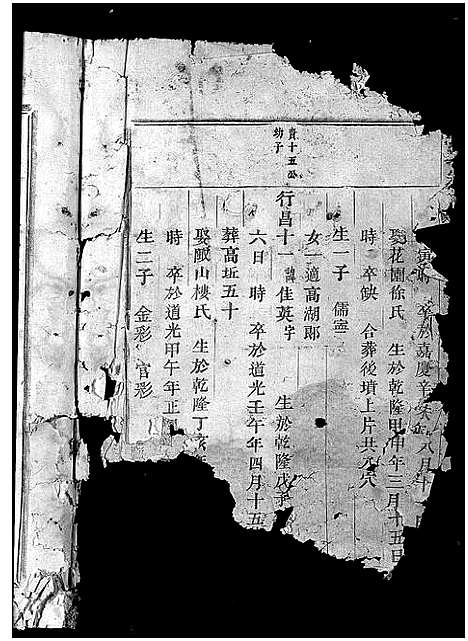 卒於嘉慶辛 八月十
娶花園徐氏 生於乾隆甲申年三月十五日
時 卒缺 合葬後墳上片共 穴
生一子 儒寧
女一適高湖郎
貴十五公
幼子
行昌十一 諱佳英字 生於乾隆戊子
六日 時 卒於道光壬午年四月十五
葬高坵五十
娶 山樓氏 生於乾隆丁亥
時 卒於道光甲午年正
生二子 金彩 官彩